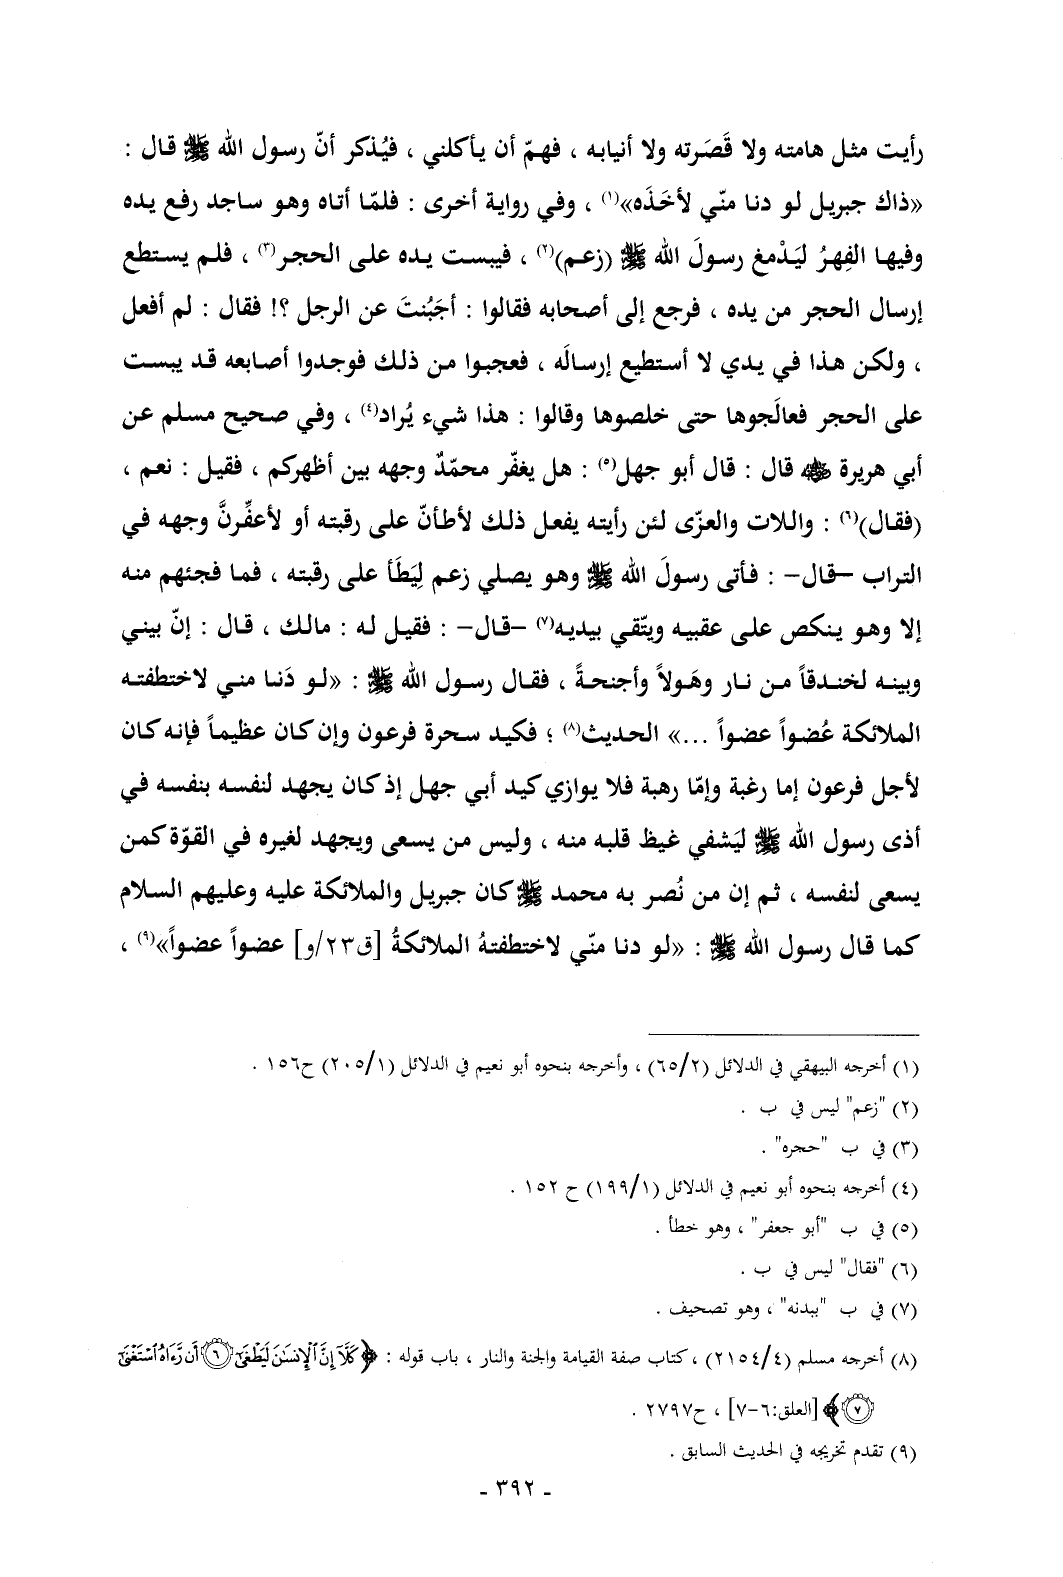 رأيت مثل هامته ولا قَصَرته ولا أنيابه ، فهمّ أن يأكلني ، فيُذكر أنّ رسول الله ﷺ قال :
«ذاك جبريل لو دنا منّي لأخَذَه»(١) ، وفي رواية أخرى : فلمّا أتاه وهو ساجد رفع يده
وفيها الفِهرُ ليَدْمغ رسولَ الله ﷺ (زعم)(٢) ، فيبست يده على الحجر(٣) ، فلم يستطع
إرسال الحجر من يده ، فرجع إلى أصحابه فقالوا : أجَبُنتَ عن الرجل ؟! فقال : لم أفعل
، ولكن هذا في يدي لا أستطيع إرسالَه ، فعجبوا من ذلك فوجدوا أصابعه قد يبست
على الحجر فعالَجوها حتى خلصوها وقالوا : هذا شيء يُراد(٤) ، وفي صحيح مسلم عن
أبي هريرة ﷺ قال : قال أبو جهل(٥) : هل يغفّر محمّدٌ وجهه بين أظهركم ، فقيل : نعم ،
(فقال)(٦) : واللات والعزّى لئن رأيته يفعل ذلك لأطأنّ على رقبته أو لأعفِّرنَّ وجهه في
التراب –قال– : فأتى رسولَ الله ﷺ وهو يصلي زعم لِيَطَأ على رقبته ، فما فجئهم منه
إلا وهو ينكص على عقبيه ويتّقي بيديه(٧) –قال– : فقيل له : مالك ، قال : إنّ بيني
وبينه لخندقاً من نار وهَولاً وأجنحةً ، فقال رسول الله ﷺ : «لو دَنا مني لاختطفته
الملائكة عُضواً عضواً ...» الحديث(٨) ؛ فكيد سحرة فرعون وإن كان عظيماً فإنه كان
لأجل فرعون إما رغبة وإمّا رهبة فلا يوازي كيد أبي جهل إذ كان يجهد لنفسه بنفسه في
أذى رسول الله ﷺ ليَشفي غيظ قلبه منه ، وليس من يسعى ويجهد لغيره في القوّة كمن
يسعى لنفسه ، ثم إن من نُصر به محمد ﷺ كان جبريل والملائكة عليه وعليهم السلام
كما قال رسول الله ﷺ : «لو دنا منّي لاختطفتهُ الملائكةُ [ق٢٣/و] عضواً عضواً»(٩) ،
(١) أخرجه البيهقي في الدلائل (٦٥/٢) ، وأخرجه بنحوه أبو نعيم في الدلائل (٢٠٥/١) ح١٥٦ .
(٢) "زعم" ليس في ب .
(٣) في ب "حجره" .
(٤) أخرجه بنحوه أبو نعيم في الدلائل (١٩٩/١) ح ١٥٢ .
(٥) في ب "أبو جعفر" ، وهو خطأ .
(٦) "فقال" ليس في ب .
(٧) في ب "ببدنه" ، وهو تصحيف .
(٨) أخرجه مسلم (٢١٥٤/٤) ، كتاب صفة القيامة والجنة والنار ، باب قوله : ﴿كَلَّآ إِنَّ ٱلْإِنسَٰنَ لَيَطْغَىٰٓ ۝٦ أَن رَّءَاهُ ٱسْتَغْنَىٰٓ
۝٧﴾ [العلق:٦-٧] ، ح٢٧٩٧ .
(٩) تقدم تخريجه في الحديث السابق .
- ٣٩٢ -